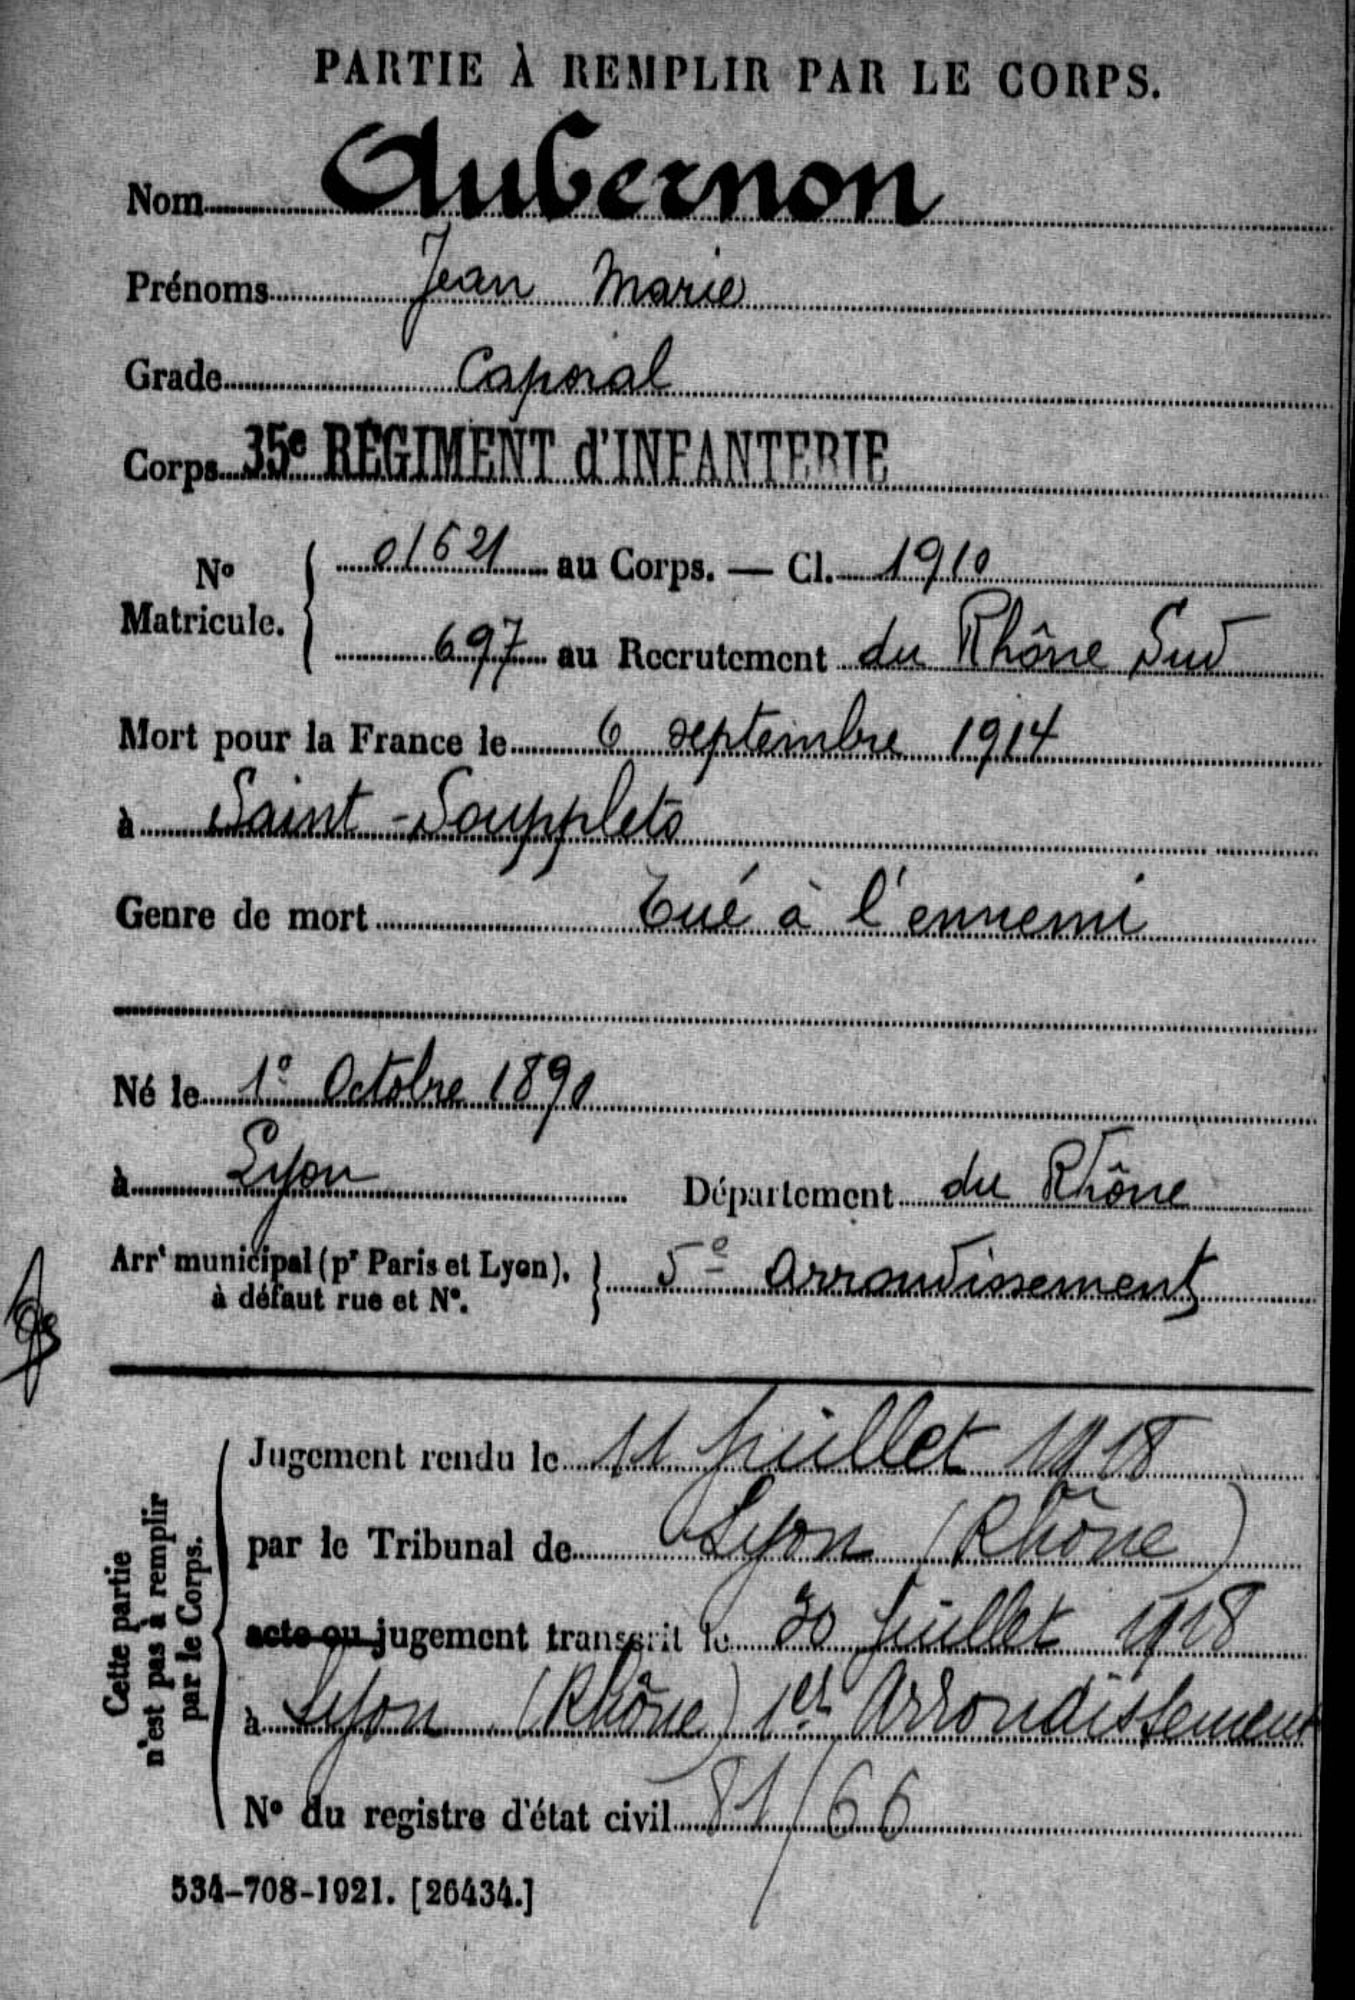 PARTIE À REMPLIR PAR LE CORPS.
Nom Aubernon
Prénoms Jean Marie
Grade Caporal
Corps 35e RÉGIMENT d'INFANTERIE
No Matricule. { 01621 au Corps. — Cl. 1910
697 au Recrutement du Rhône Sud
Mort pour la France le 6 septembre 1914
à Saint-Soupplets
Genre de mort Tué à l'ennemi
Né le 1o Octobre 1890
à Lyon Département du Rhône
Arrt municipal (pr Paris et Lyon), à défaut rue et No. } 5e arrondissement
Cette partie n'est pas à remplir par le Corps.
Jugement rendu le 11 Juillet 1918
par le Tribunal de Lyon (Rhône)
acte ou jugement transcrit le 30 Juillet 1918
à Lyon (Rhône) 1er Arrondissement
No du registre d'état civil 81/66
534-708-1921. [26434.]